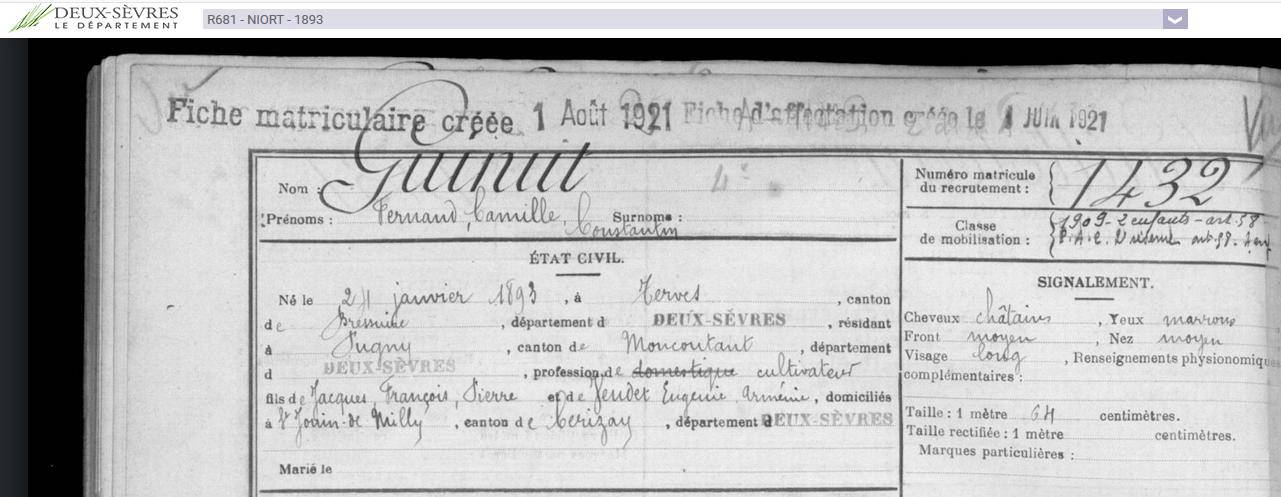 DEUX-SÈVRES
LE DÉPARTEMENT
R681 - NIORT - 1893
Fiche matriculaire créée 1 Août 1921 Fiche d'affectation créée le 1 JUIN 1921
Nom : Guinut
Prénoms : Fernand, Camille, Constantin Surnoms :
Numéro matricule du recrutement : 1432
Classe de mobilisation : 1909 - 2 enfants - art. 58
ÉTAT CIVIL.
Né le 24 janvier 1893, à Terves, canton
de Bressuire, département d DEUX-SÈVRES, résidant
à Pugny, canton de Moncoutant, département
d DEUX-SÈVRES, profession de domestique cultivateur
fils de Jacques, François, Pierre et de Jeudet Eugénie Arménie, domiciliés
à St Jouin-de Milly, canton de Cerizay, département d DEUX-SÈVRES
Marié le
SIGNALEMENT.
Cheveux châtains, Yeux marrons
Front moyen, Nez moyen
Visage long, Renseignements physionomiques
complémentaires :
Taille : 1 mètre 64 centimètres.
Taille rectifiée : 1 mètre centimètres.
Marques particulières :